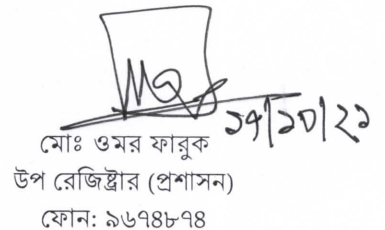 ১৭/১০/২১
মোঃ ওমর ফারুক
উপ রেজিষ্ট্রার (প্রশাসন)
ফোন: ৯৬৭৪৮৭৪